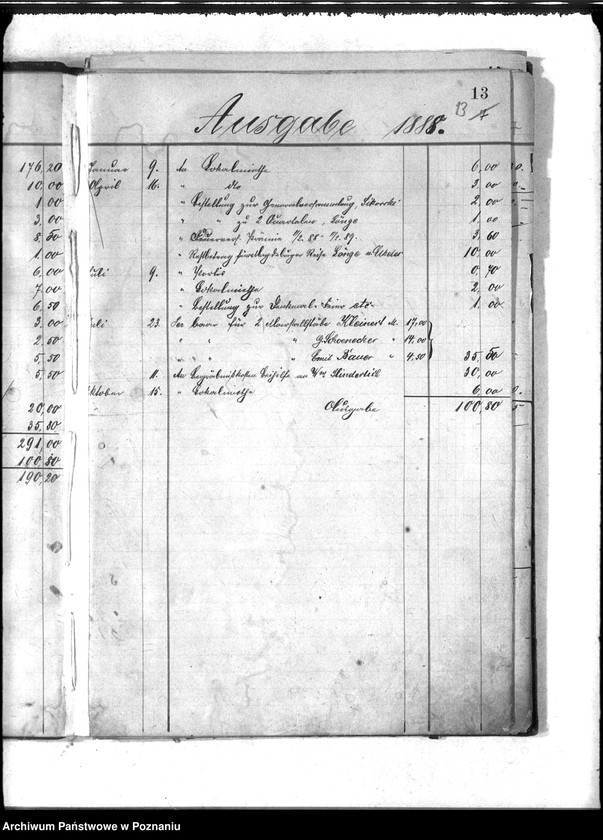 13
13
Ausgabe 1888.
176,20 Januar 9. An Lokalmiethe 6,00
10,00 April 16. " dto 3,00
1,00 " Bestellung zur Generalversammlung, 2,00
3,00 " " zu 2 Quartalen, Länge 1,00
8,50 " Feuervers. Prämie 88 - 89. 3,60
1,00 " Länge 10,00
6,00 Juli 9. " Porto 0,70
7,00 " Lokalmiethe 2,00
6,50 " Bestellung zur Denkmal-Feier etc. 1,00
3,00 Juli 23. Per baar für 2 Kleinert M. 17,00
2,50 " " " G. Schoenecker " 14,00
5,50 " " " Emil Bauer " 4,50 35,50
5,50 11. An Beihilfe an 30,00
Oktober 15. " Lokalmiethe 6,00
20,00 Ausgabe 100,80
35,30
291,00
100,80
190,20
Archiwum Państwowe w Poznaniu